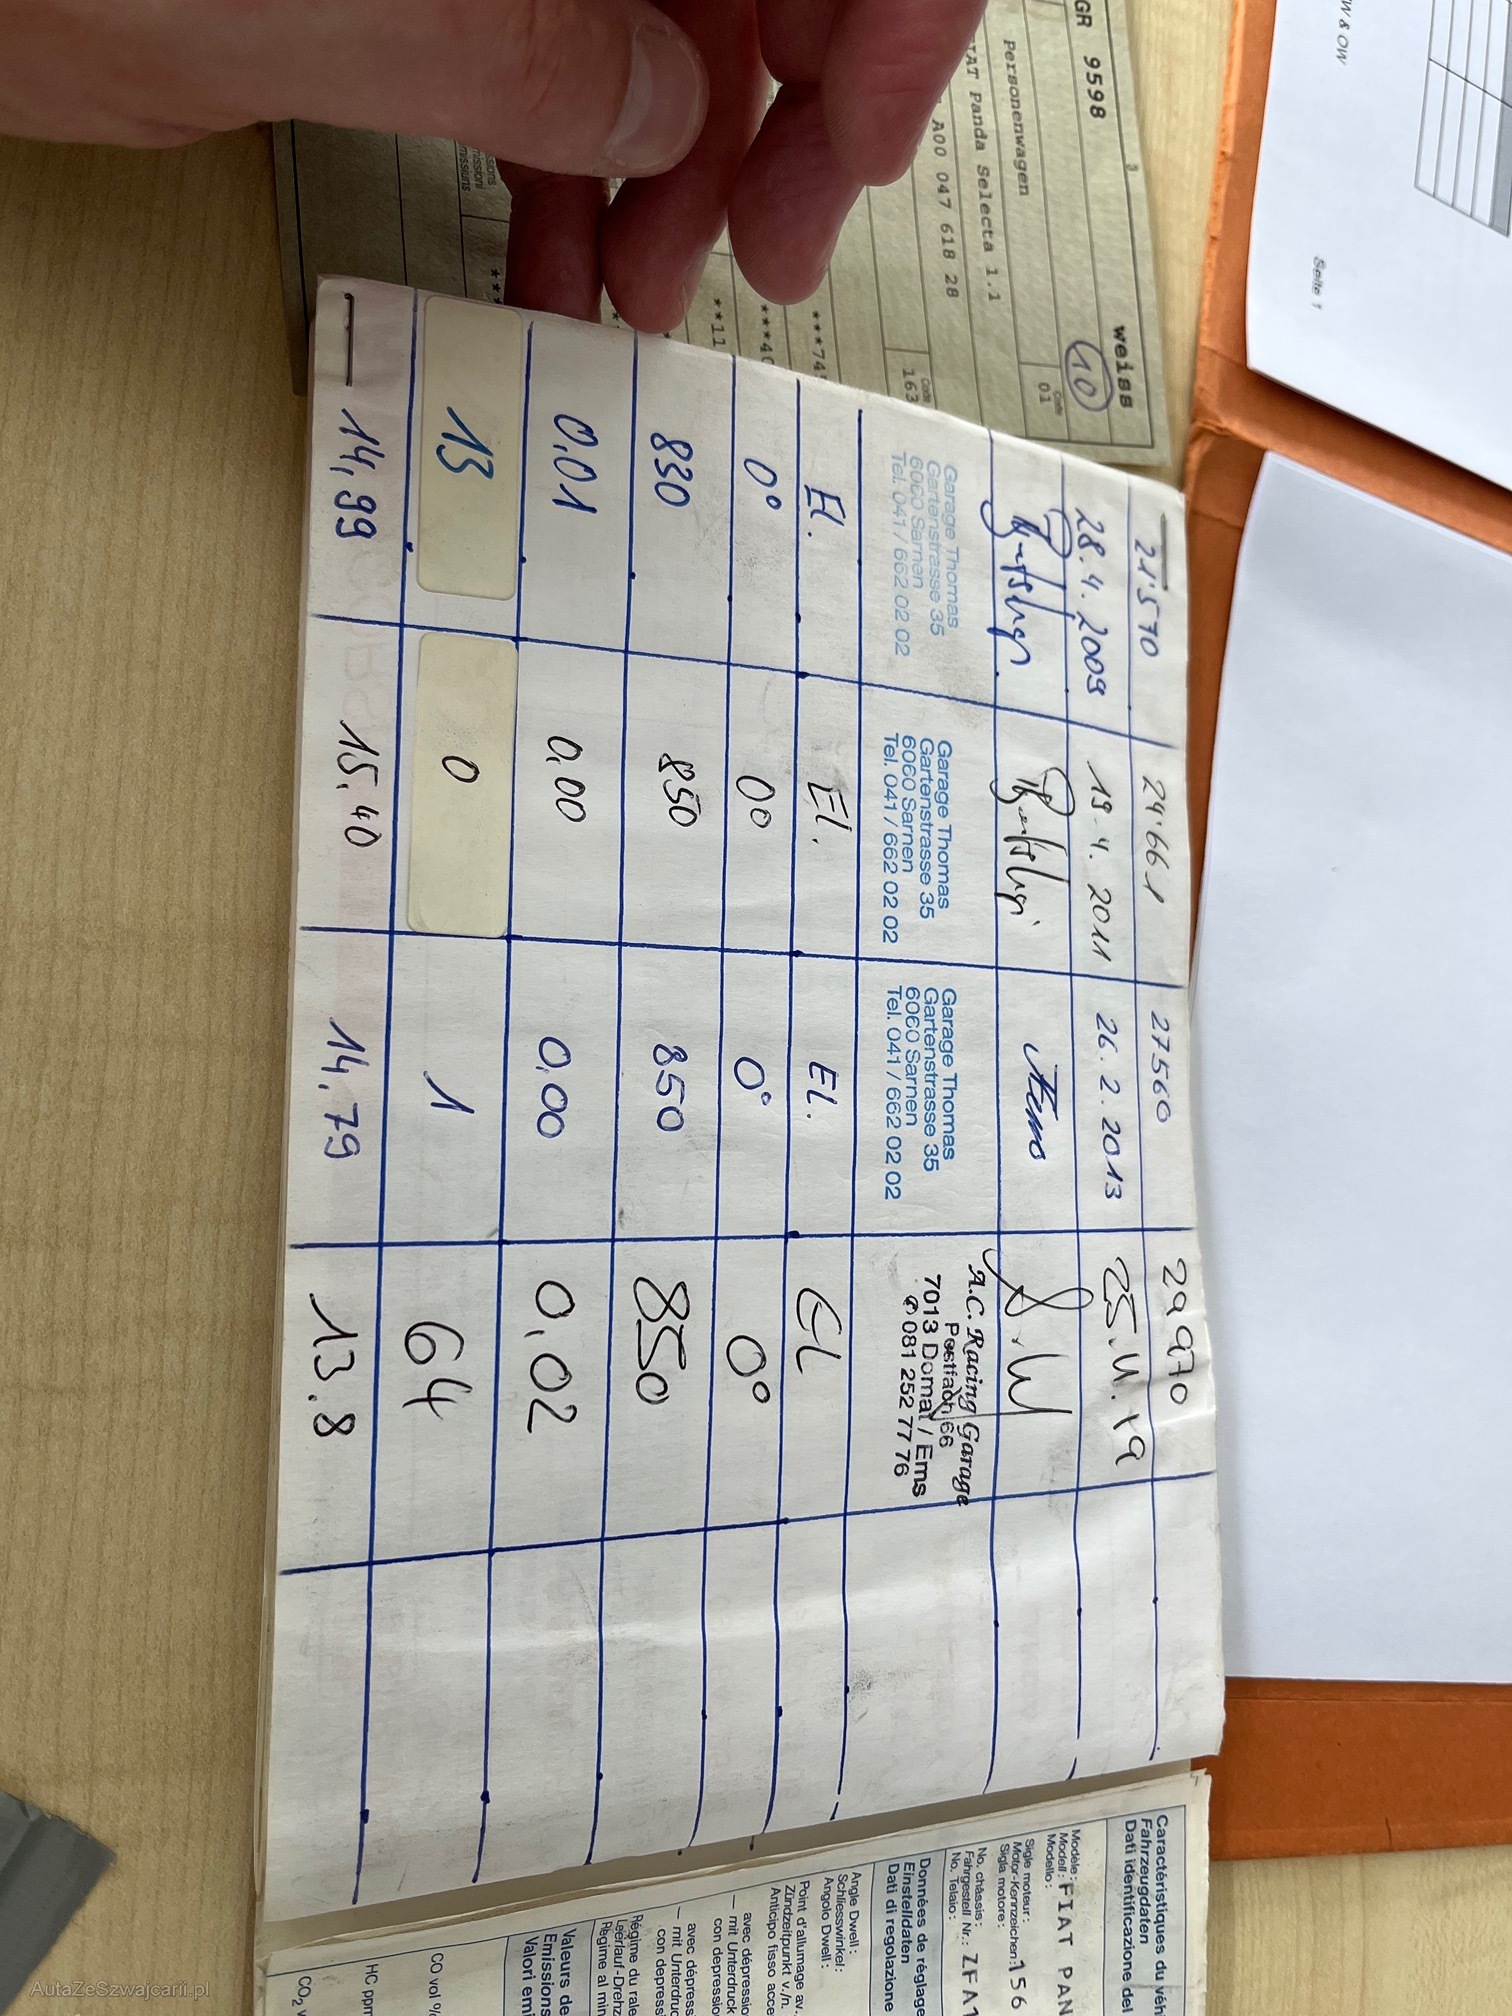 GR 9598
weiss
10
Personenwagen
Code
01
FIAT Panda Selecta 1.1
Code
163
A00 047 618 28
***74
***40
**11
W & OW
Seite 1
21.570
24.661
27560
29970
28.4.2009
19.4.2011
26.2.2013
25.11.19
Garage Thomas
Gartenstrasse 35
6060 Sarnen
Tel. 041 / 662 02 02
Garage Thomas
Gartenstrasse 35
6060 Sarnen
Tel. 041 / 662 02 02
Garage Thomas
Gartenstrasse 35
6060 Sarnen
Tel. 041 / 662 02 02
A.C. Racing Garage
Postfach 66
7013 Domat / Ems
✆ 081 252 77 76
El.
El.
EL.
EL
0°
0°
0°
0°
830
850
850
850
0,01
0,00
0,00
0,02
13
0
1
64
14,99
15,40
14,79
13.8
Caractéristiques du véh
Fahrzeugdaten
Dati identificazione del
Modèle:
Modell: FIAT PAN
Modello:
Sigle moteur:
Motor-Kennzeichen: 156
Sigla motore:
No. châssis:
Fahrgestell Nr.: ZFA1
No. Telaio:
Données de réglage
Einstelldaten
Dati di regolazione
Angle Dwell:
Schliesswinkel:
Angolo Dwell:
Point d'allumage av.
Zündzeitpunkt v./n.
Anticipo fisso acce
avec dépressio
— mit Unterdruck
con depressi
avec dépress
— mit Unterdruc
con depress
Régime du rale
Leerlauf-Drehz
Régime al min
Valeurs de
Emissions
Valori emi
CO vol %
HC ppm
CO₂ v
AutaZeSzwajcarii.pl